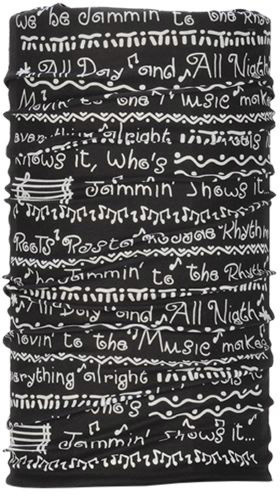 We be Jammin' to the Rhy
All Day and All Night
Movin' to the Music make
everything alright
knows it, Who's
Jammin' shows it.
Roots Rasta Reggae Rhythm
Jammin' to the Rhy
All Day and All Night
Movin' to the Music makes
everything alright
Who's
Jammin' shows it...